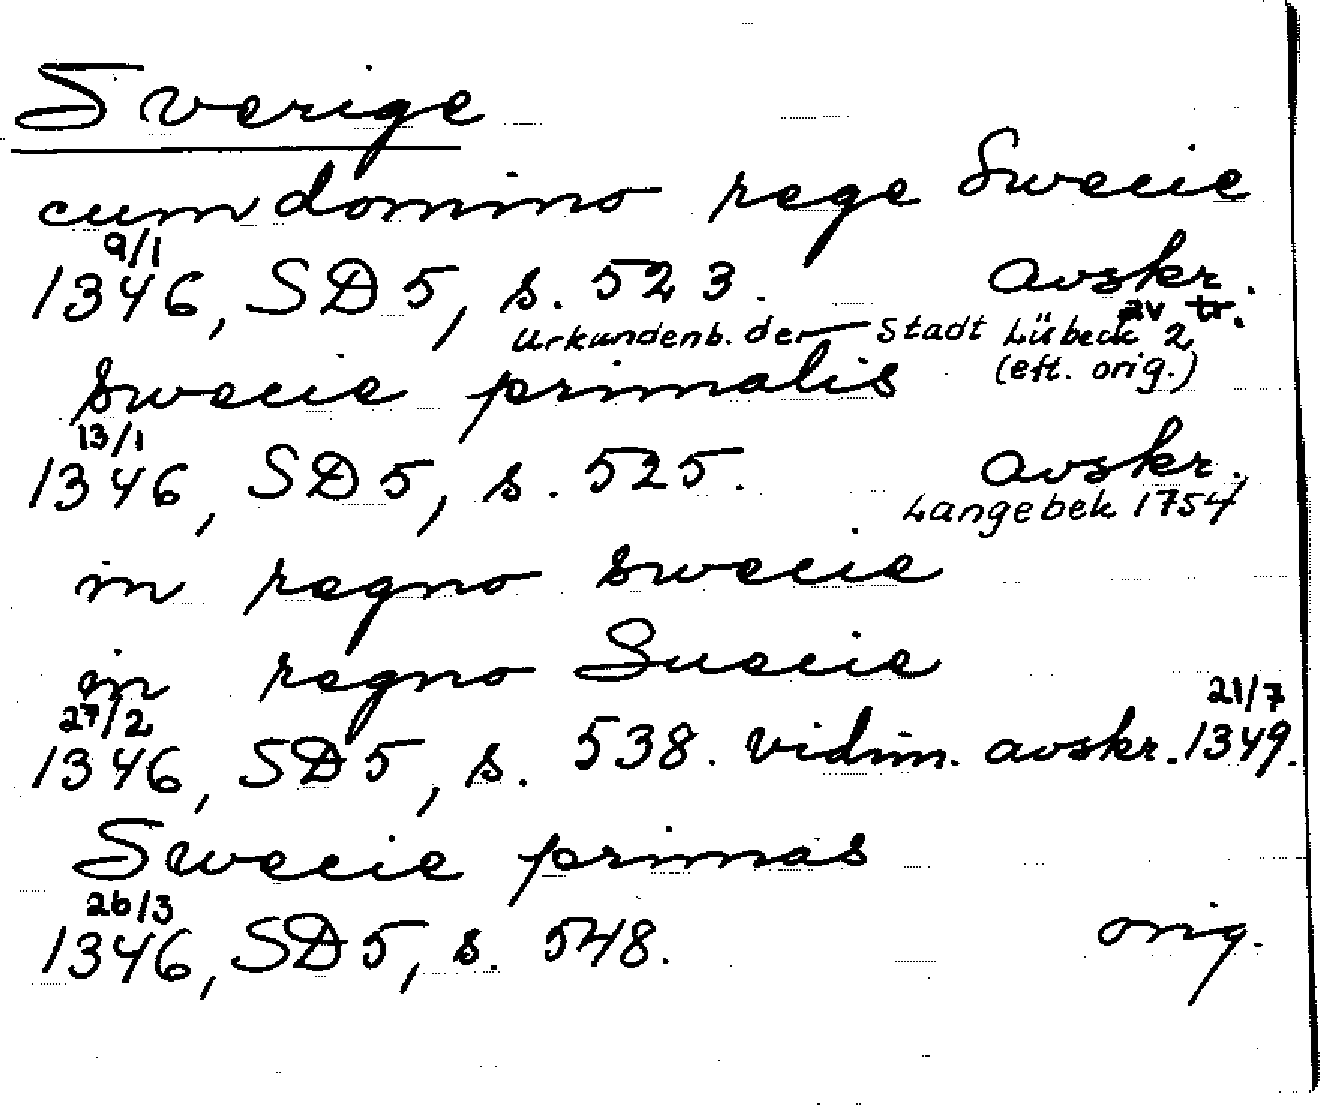 Sverige
cum domino rege Swecie
9/1
1346, SD 5, s. 523. avskr.
av tr.
Urkundenb. der Stadt Lübeck 2
(eft. orig.)
Swecie primalis
13/1
1346, SD 5, s. 525. avskr.
Langebek 1754
in regno swecie
in regno Suecie
27/2 21/7
1346, SD 5, s. 538. vidim. avskr. 1349.
Swecie primas
26/3
1346, SD 5, s. 548. orig.